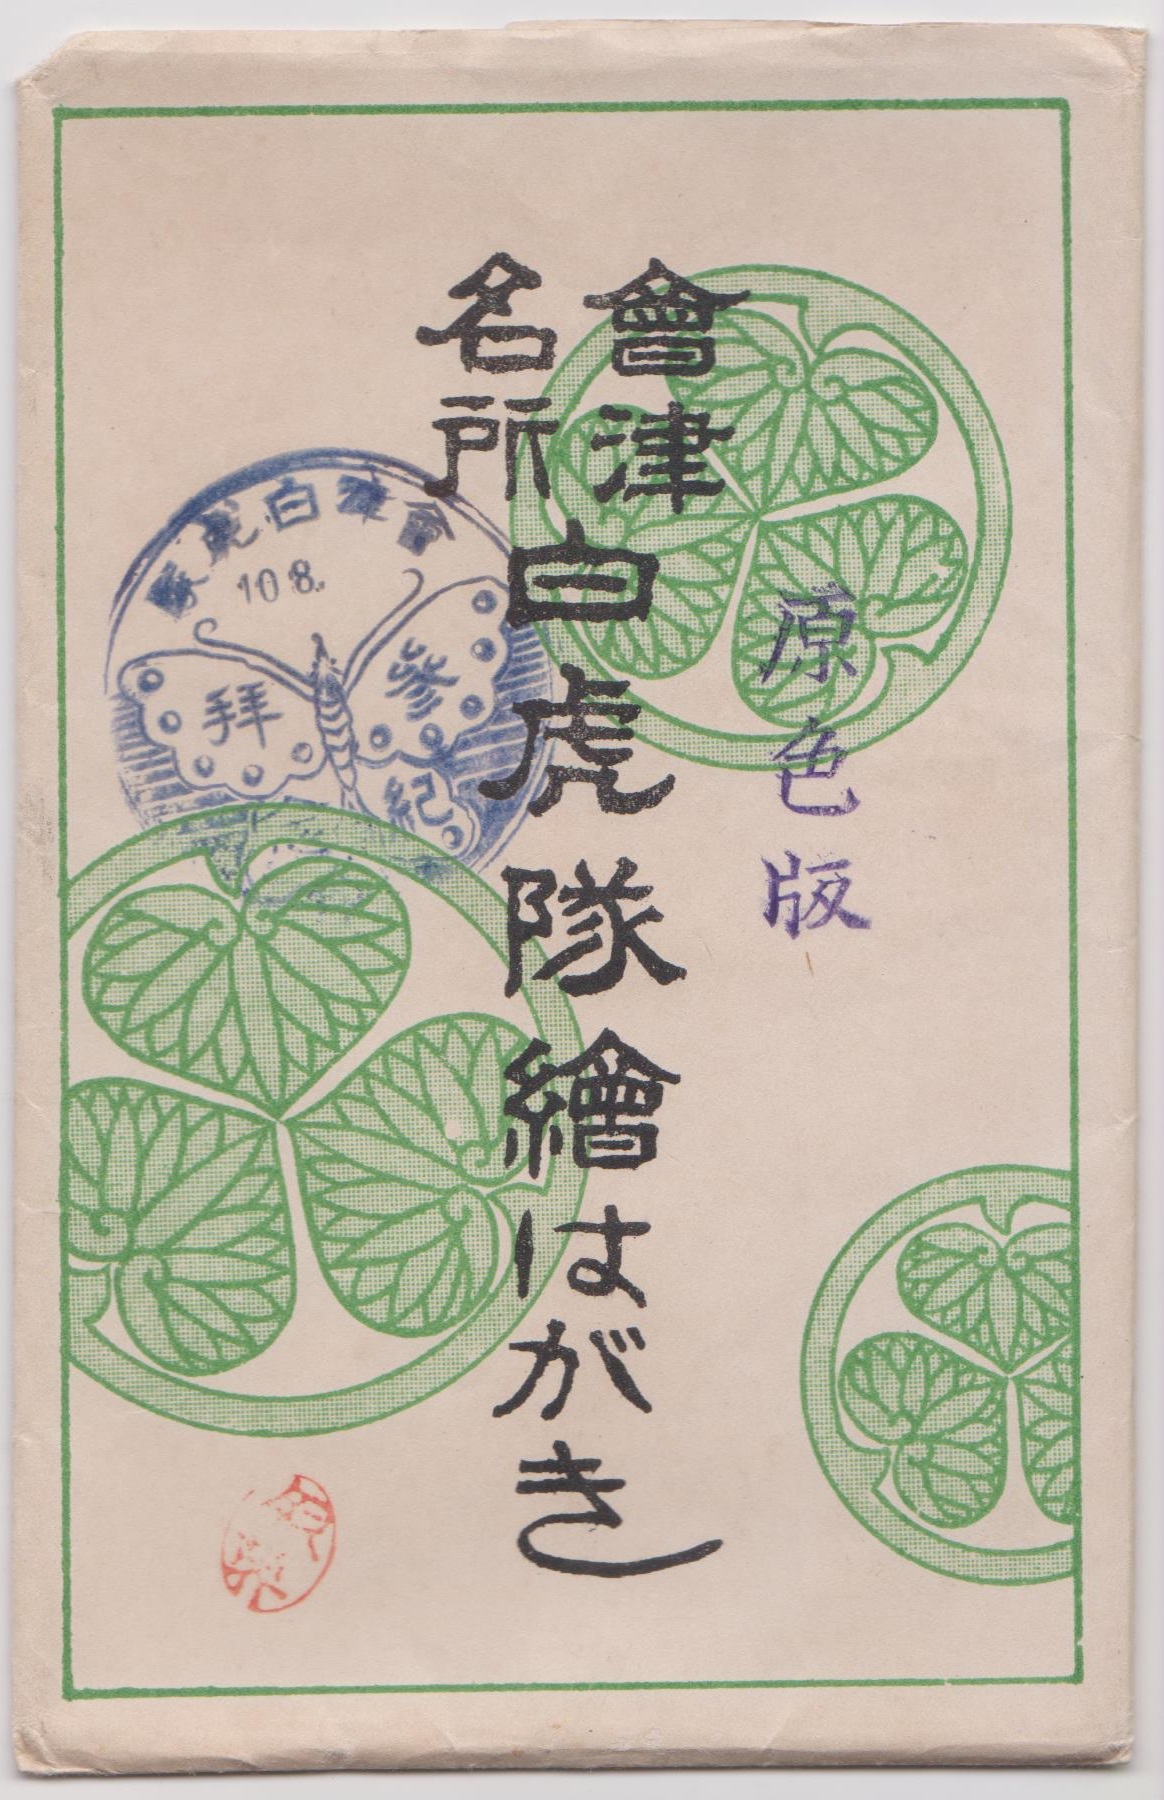 會津
名所
白虎隊繪はがき
原色版
會津白虎隊
10 8.
參拜
紀